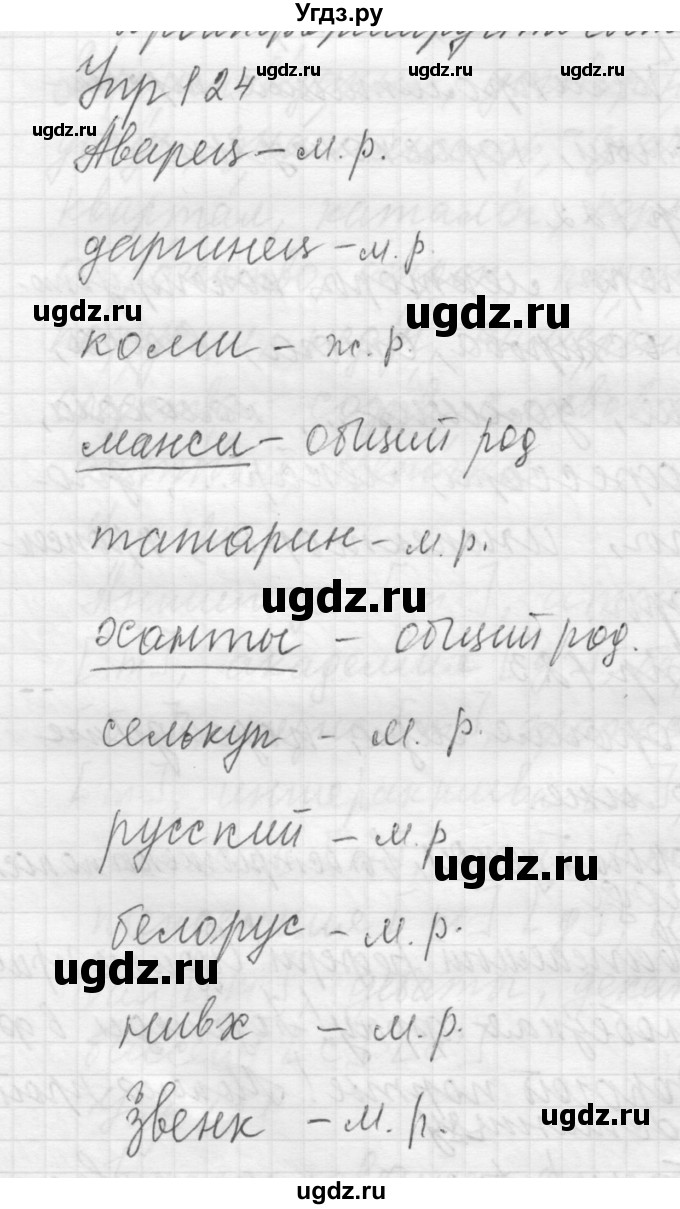 Угдз.ру
Упр 124
ugdz.ru ugdz.ru ugdz.ru
ugdz.ru
Аварец – м. р.
даргинец – м. р.
ugdz.ru ugdz.ru
коми – ж. р.
манси – общий род
татарин – м. р.
ugdz.ru
ханты – общий род.
селькуп – м. р.
русский – м. р.
ugdz.ru
белорус – м. р.
ugdz.ru
нивх – м. р.
Эвенк – м. р.
ugdz.ru
ugdz.ru